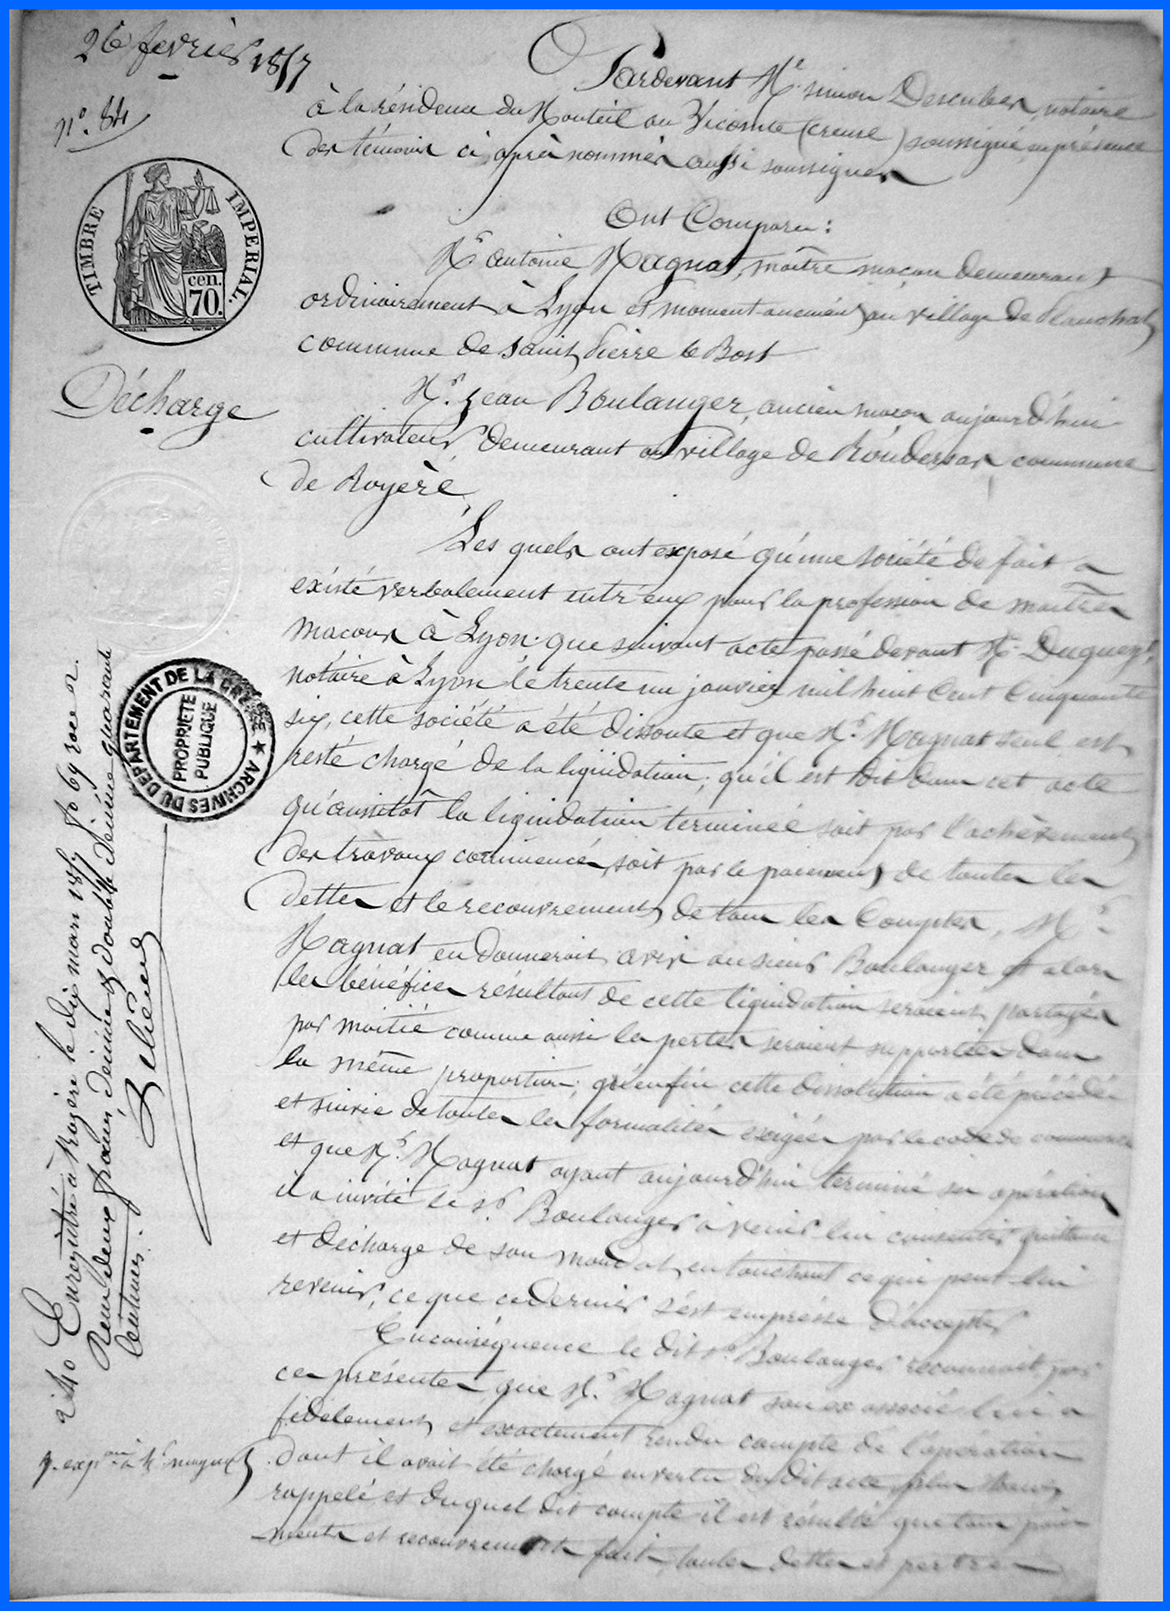 26 fevrier 1857
n°. 84
TIMBRE IMPERIAL.
cen.
70.
Décharge
Pardevant Me simon Descubes, notaire
à la résidence du Monteil au Vicomte (creuse) soussigné, en présence
des témoins ci, après nommés aussi soussignés
Ont Comparu :
Mr antoine Magnat, maître maçon demeurant
ordinairement à Lyon et momentanement au village de Planchat
commune de Saint Pierre le Bost
Mr. Jean Boulanger, ancien maçon aujourd'hui
cultivateur, demeurant au village de Roudersas, commune
de Royère
Les quels ont exposé qu'une société de fait a
existé verbalement entr'eux pour la profession de maitres
macons à Lyon. que suivant acte passé devant Me Dugueyt,
notaire à Lyon le trente un janvier mil huit Cent Cinquante
six, cette société a été dissoute et que Mr. Magnat seul est
resté chargé de la liquidation; qu'il est dit dans cet acte
qu'aussitôt la liquidation terminée soit par l'achèvement
des travaux commencés, soit par le paiement de toutes les
dettes et le recouvrement de tous les Comptes, Mr
Magnat en donnerait avis au sieur Boulanger et alors
les bénéfices résultant de cette liquidation seraient partagés
par moitié comme aussi les pertes seraient supportées dans
la même proportion; qu'enfin cette dissolution a été précédée
et suivie de toutes les formalités exigées par le code de commerce
et que Mr. Magnat ayant aujourd'hui terminé ses opérations
il a invité le sr. Boulanger à venir lui consentir quittance
et décharge de son mandat, en touchant ce qui peut lui
revenir, ce que ce dernier s'est empressé d'accepter
En conséquence le dit sr. Boulanger reconnait par
ces présentes que Mr. Magnat son ex associé lui a
fidèlement et exactement rendu compte de l'opération
dont il avait été chargé en vertu du dit acte plus haut
rappelé et duquel dit compte il est résulté que tous paie-
ments et recouvrements faits, toutes dettes et pertes
ARCHIVES DU DEPARTEMENT DE LA CREUSE ★
PROPRIETE
PUBLIQUE
240 Enregistré à Royère le dix mars 1857 fo 69 roce 2.
Reçu deux francs decime & double decime quarante
centimes.